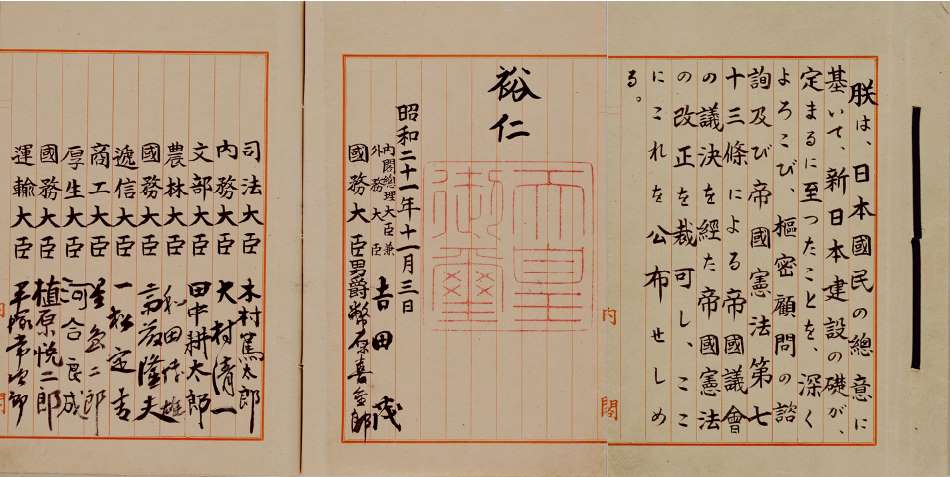 朕は、日本國民の總意に
基いて、新日本建設の礎が、
定まるに至つたことを、深く
よろこび、樞密顧問の諮
詢及び帝國憲法第七
十三條による帝國議會
の議決を經た帝國憲法
の改正を裁可し、ここ
にこれを公布せしめ
る。
内閣
裕仁
天皇
御璽
昭和二十一年十一月三日
内閣總理大臣兼
外務大臣 吉田茂
國務大臣 男爵幣原喜重郎
司法大臣 木村篤太郎
内務大臣 大村清一
文部大臣 田中耕太郎
農林大臣 和田博雄
國務大臣 斎藤隆夫
遞信大臣 一松定吉
商工大臣 星島二郎
厚生大臣 河合良成
國務大臣 植原悦二郎
運輸大臣 平塚常次郎
内閣